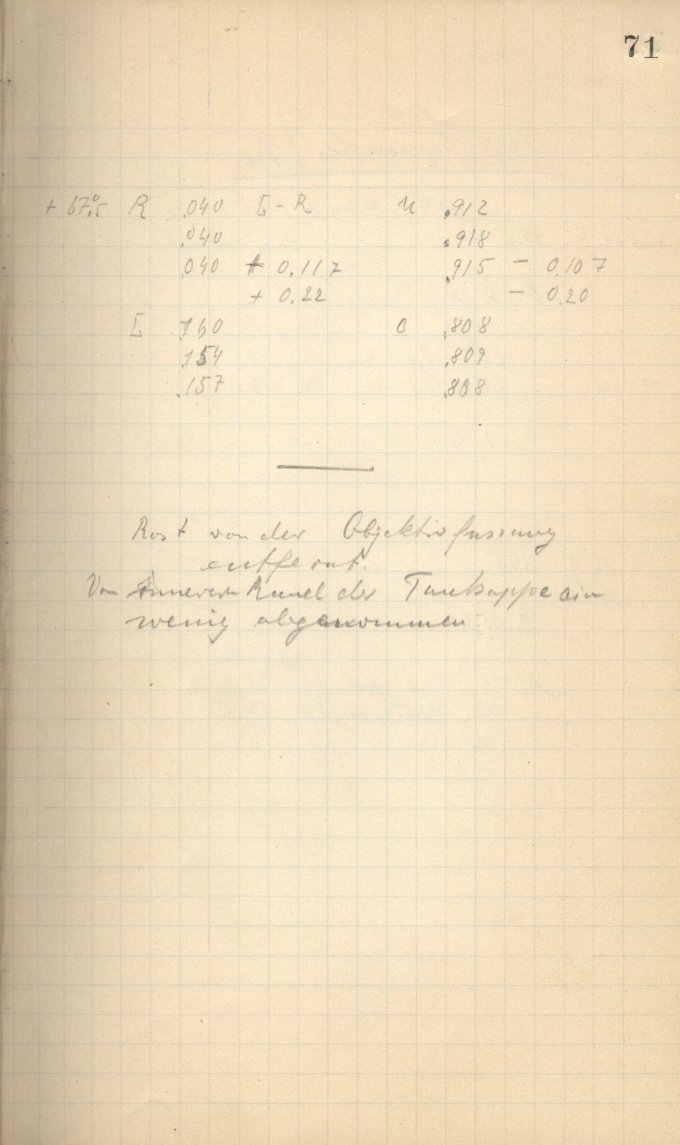 71
+ 67°.5 R .040 L - R u .912
.040 .918
.040 + 0.117 .915 - 0.107
+ 0.22 - 0.20
L .160 o .808
.154 .809
.157 .808
Rost von der Objektivfassung
entfernt.
Von innerem Rand der Taukappe ein
wenig abgenommen.